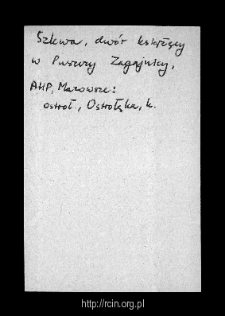 Szkwa, dwór książęcy
w Puszczy Zagajnicy,
AHP, Mazowsze:
ostroł., Ostrołęka, k.
http://rcin.org.pl